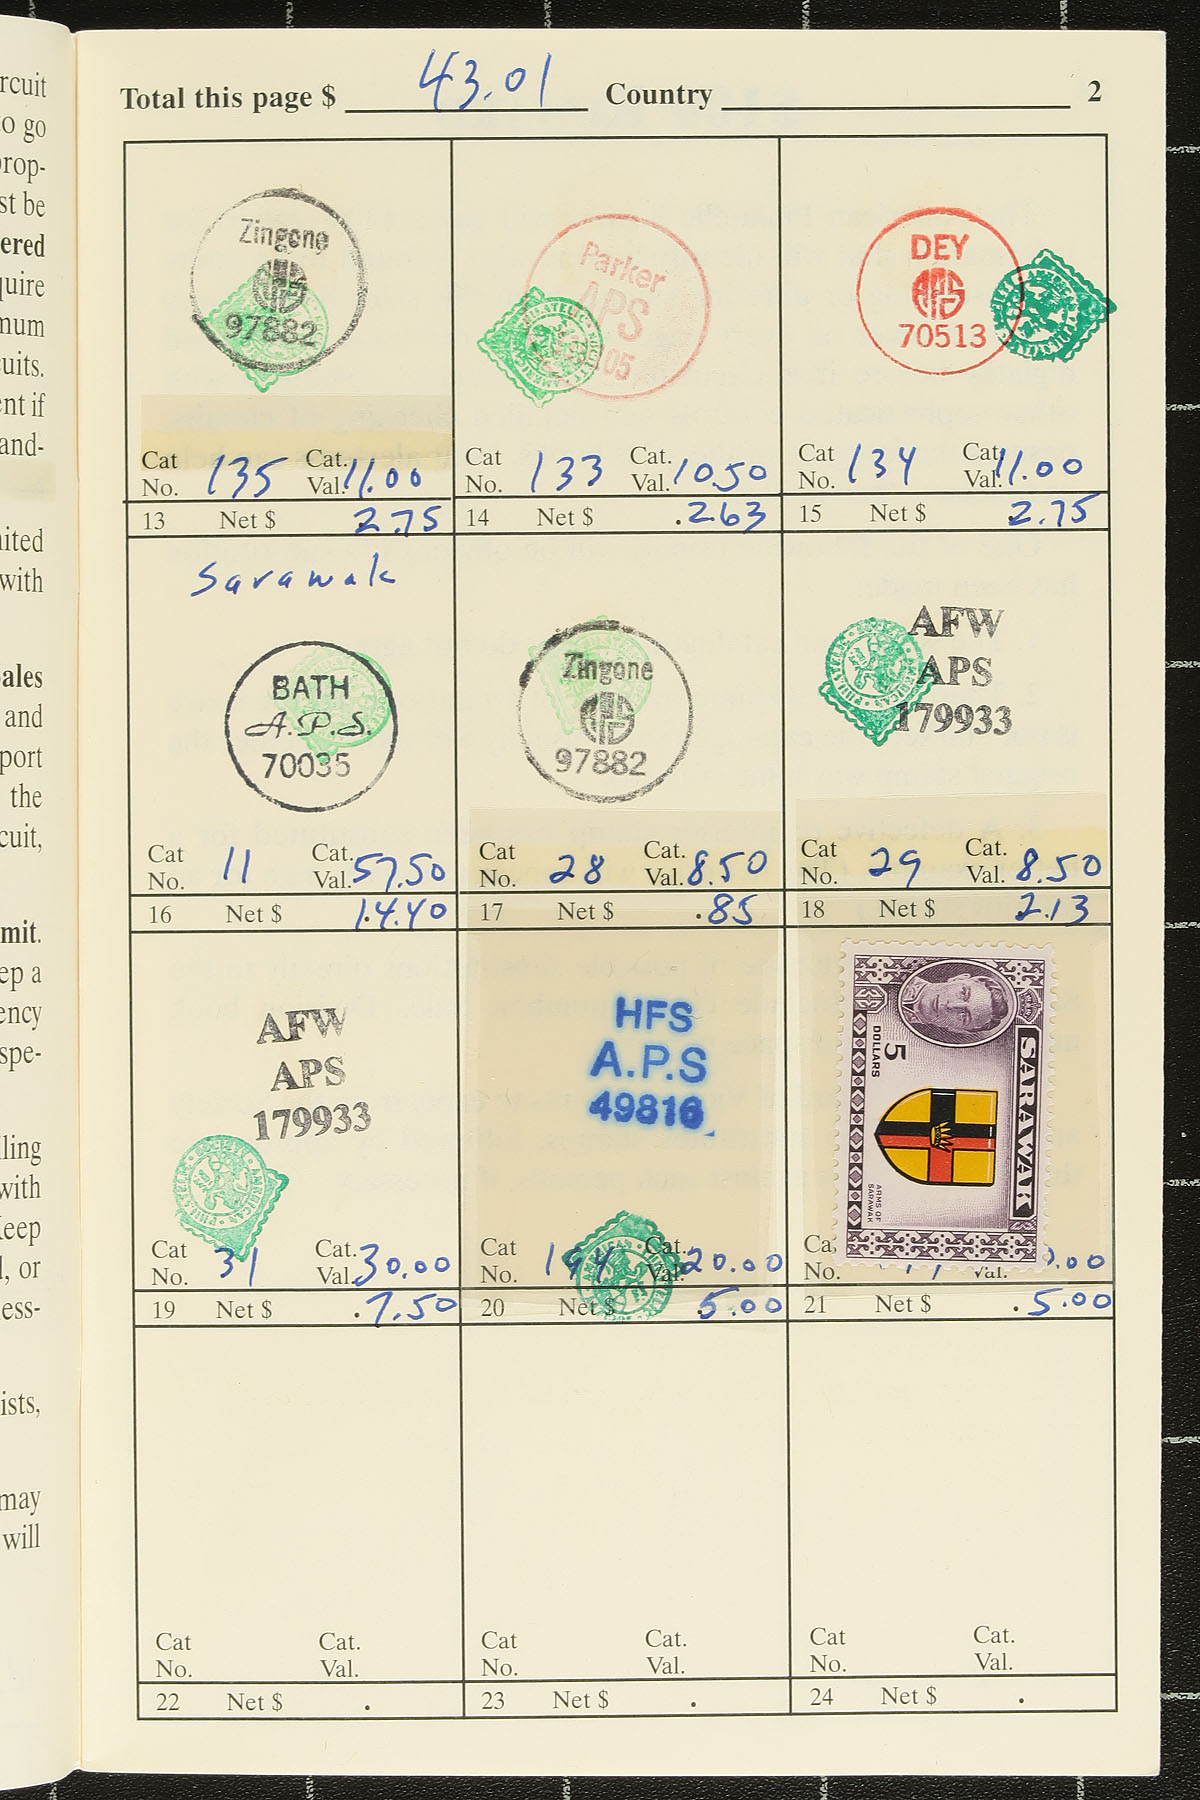 rcuit
to go
prop-
st be
ered
quire
mum
cuits.
ent if
and-
nited
with
ales
and
port
the
cuit,
mit.
ep a
ency
spe-
lling
with
Keep
l, or
ess-
ists,
may
will
Total this page $ 43.01 Country 2
Zingone
APS
97882
Cat No. 135 Cat. Val. 11.00
13 Net $ 2.75
Parker
APS
05
Cat No. 133 Cat. Val. 10.50
14 Net $ .2.63
DEY
APS
70513
Cat No. 134 Cat. Val. 11.00
15 Net $ 2.75
Sarawak
BATH
A.P.S.
70035
Cat No. 11 Cat. Val. 57.50
16 Net $ 14.40
Zingone
APS
97882
Cat No. 28 Cat. Val. 8.50
17 Net $ .85
AMERICAN PHILATELIC SOCIETY
AFW
APS
179933
Cat No. 29 Cat. Val. 8.50
18 Net $ 2.13
AFW
APS
179933
AMERICAN PHILATELIC SOCIETY
Cat No. 31 Cat. Val. 30.00
19 Net $ .7.50
HFS
A.P.S
49816
Cat No. 194 Cat. Val. 20.00
20 Net $ 5.00
SARAWAK
5
DOLLARS
ARMS OF
SARAWAK
Ca No. Val. .00
21 Net $ .5.00
Cat No. Cat. Val.
22 Net $ .
Cat No. Cat. Val.
23 Net $ .
Cat No. Cat. Val.
24 Net $ .